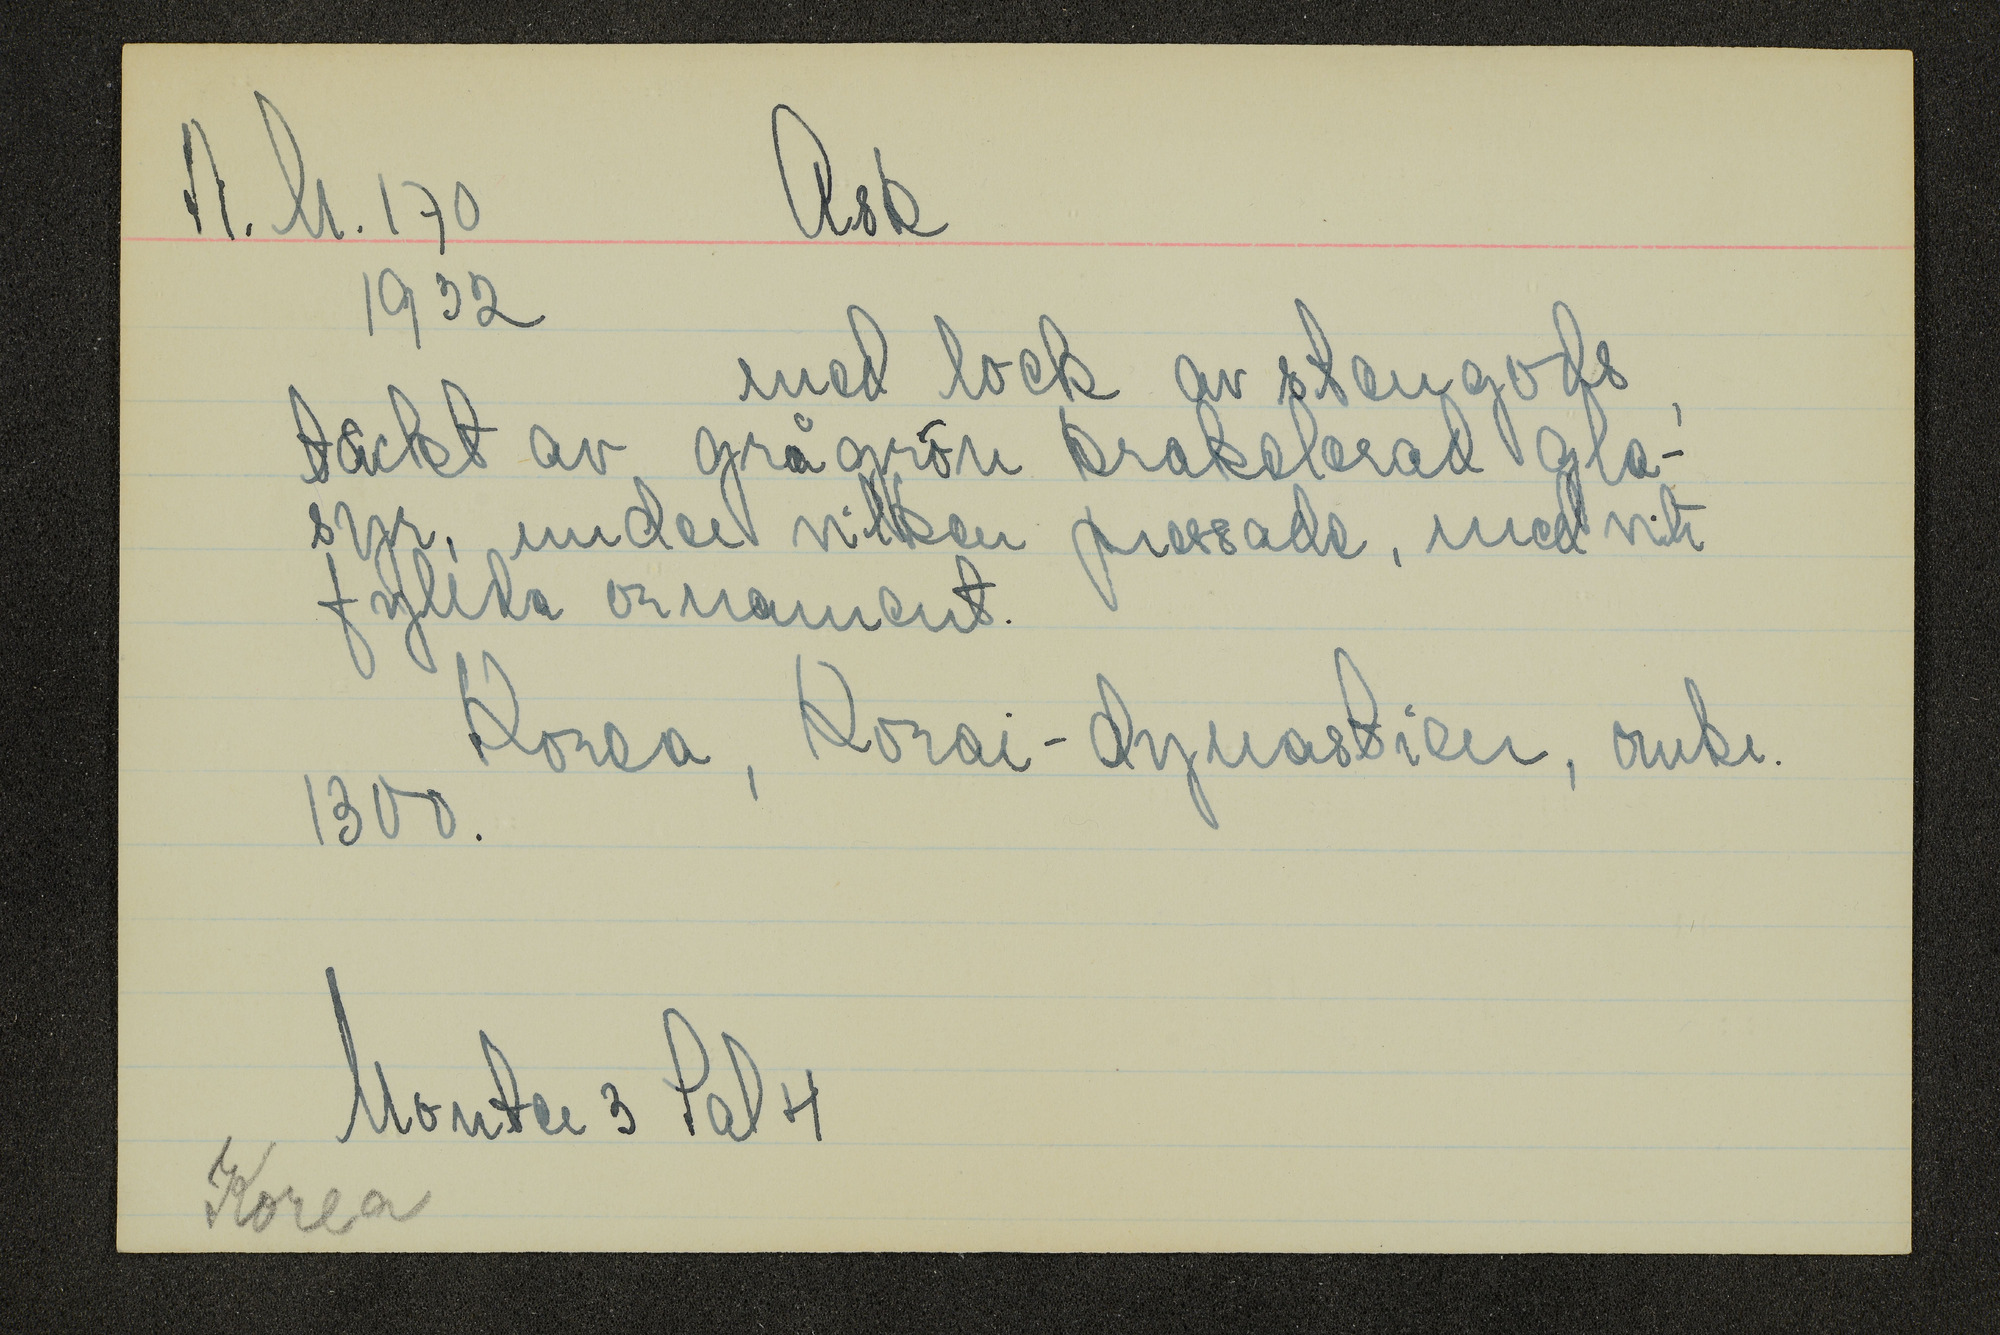 N. M. 170 Ask
1932
med lock av stengods,
täckt av grågrön krakelerad gla-
syr, under vilken pressade, med vitt
fyllda ornament.
Korea, Korai-dynastien, omkr.
1300.
Monter 3 Sal H
Korea